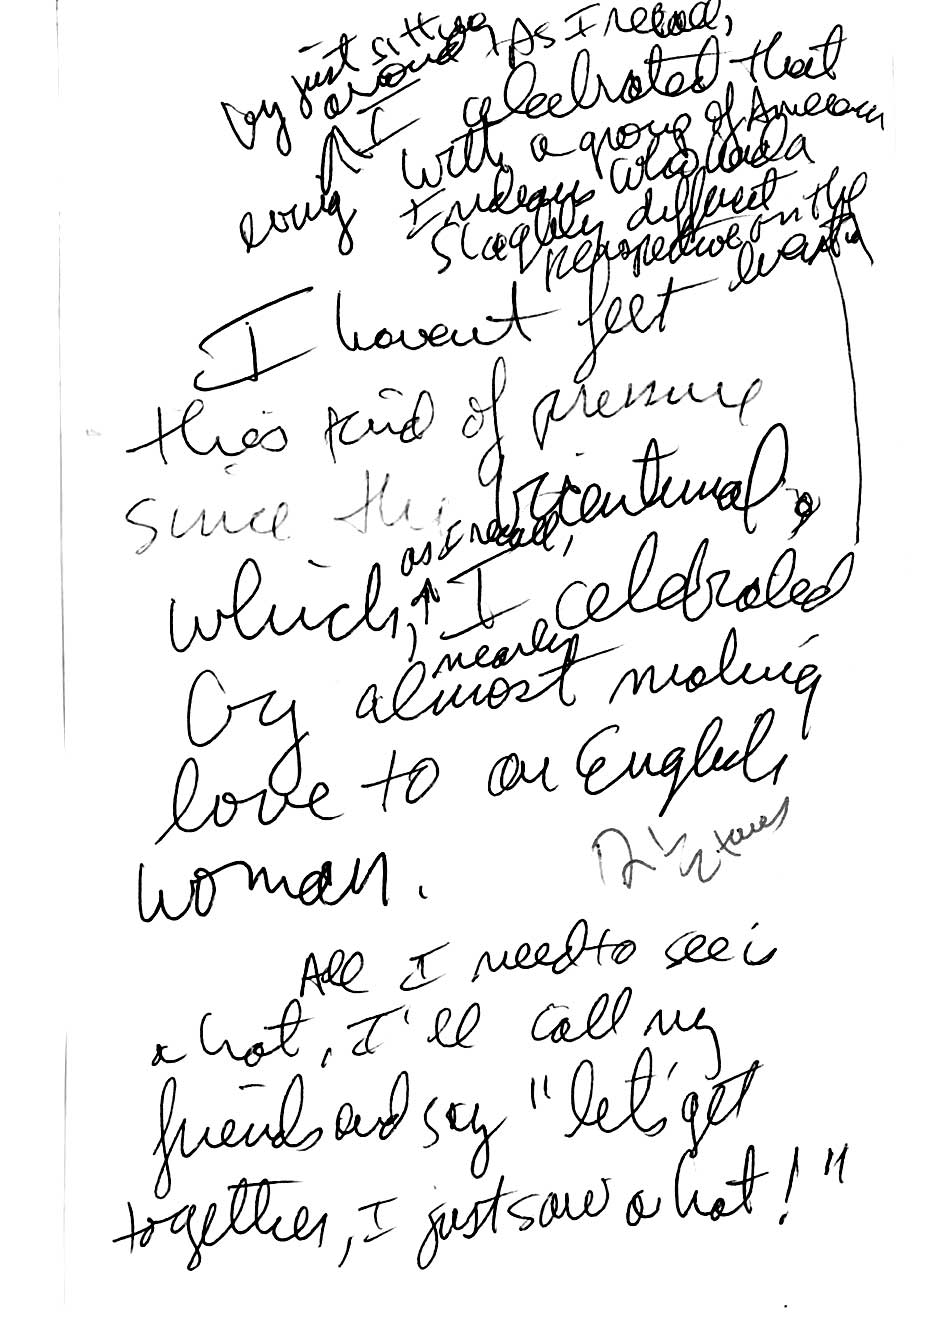 by just sitting
around. As I recall,
I celebrated that
with a group of American
Indians who had a
slightly different
perspective on the
event
I havent felt
this kind of pressure
since the bicentennial,
as I recall,
which, I celebrated
nearly
by almost making
love to an English
woman.
All I need to see is
a hat, I'll call my
friends and say "let's get
together, I just saw a hat!"